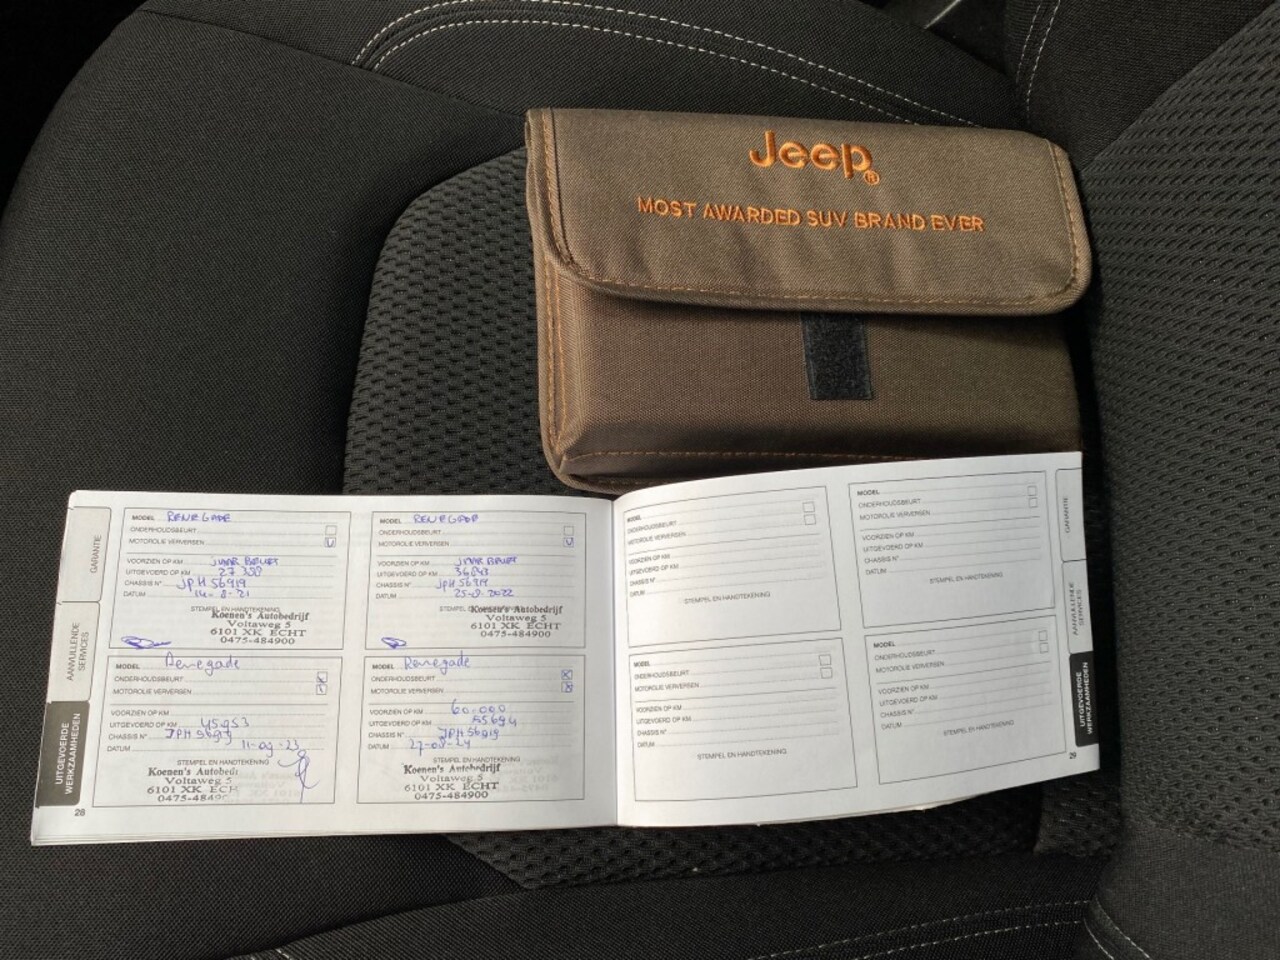 Jeep®
MOST AWARDED SUV BRAND EVER
GARANTIE
AANVULLENDE SERVICES
UITGEVOERDE WERKZAAMHEDEN
MODEL RENEGADE
ONDERHOUDSBEURT
MOTOROLIE VERVERSEN
VOORZIEN OP KM JAAR BEURT
UITGEVOERD OP KM
CHASSIS N° JPH 56919
DATUM 14-8-'21
STEMPEL EN HANDTEKENING
Koenen's Autobedrijf
Voltaweg 5
6101 XK ECHT
0475-484900
MODEL RENEGADE
ONDERHOUDSBEURT
MOTOROLIE VERVERSEN
VOORZIEN OP KM JAAR BEURT
UITGEVOERD OP KM 36643
CHASSIS N° JPH 56919
DATUM 25-8-2022
STEMPEL EN HANDTEKENING
Koenen's Autobedrijf
Voltaweg 5
6101 XK ECHT
0475-484900
MODEL Renegade
ONDERHOUDSBEURT
MOTOROLIE VERVERSEN
VOORZIEN OP KM
UITGEVOERD OP KM 45953
CHASSIS N° JPH 56919
DATUM 11-09-23
STEMPEL EN HANDTEKENING
Koenen's Autobedi
Voltaweg 5
6101 XK ECH
0475-48490
MODEL Renegade
ONDERHOUDSBEURT
MOTOROLIE VERVERSEN
VOORZIEN OP KM 60.000
UITGEVOERD OP KM 55694
CHASSIS N° JPH 56919
DATUM 27-08-24
STEMPEL EN HANDTEKENING
Koenen's Autobedrijf
Voltaweg 5
6101 XK ECHT
0475-484900
28
MODEL
ONDERHOUDSBEURT
MOTOROLIE VERVERSEN
VOORZIEN OP KM
UITGEVOERD OP KM
CHASSIS N°
DATUM
STEMPEL EN HANDTEKENING
MODEL
ONDERHOUDSBEURT
MOTOROLIE VERVERSEN
VOORZIEN OP KM
UITGEVOERD OP KM
CHASSIS N°
DATUM
STEMPEL EN HANDTEKENING
MODEL
ONDERHOUDSBEURT
MOTOROLIE VERVERSEN
VOORZIEN OP KM
UITGEVOERD OP KM
CHASSIS N°
DATUM
STEMPEL EN HANDTEKENING
MODEL
ONDERHOUDSBEURT
MOTOROLIE VERVERSEN
VOORZIEN OP KM
UITGEVOERD OP KM
CHASSIS N°
DATUM
STEMPEL EN HANDTEKENING
GARANTIE
AANVULLENDE SERVICES
UITGEVOERDE WERKZAAMHEDEN
29